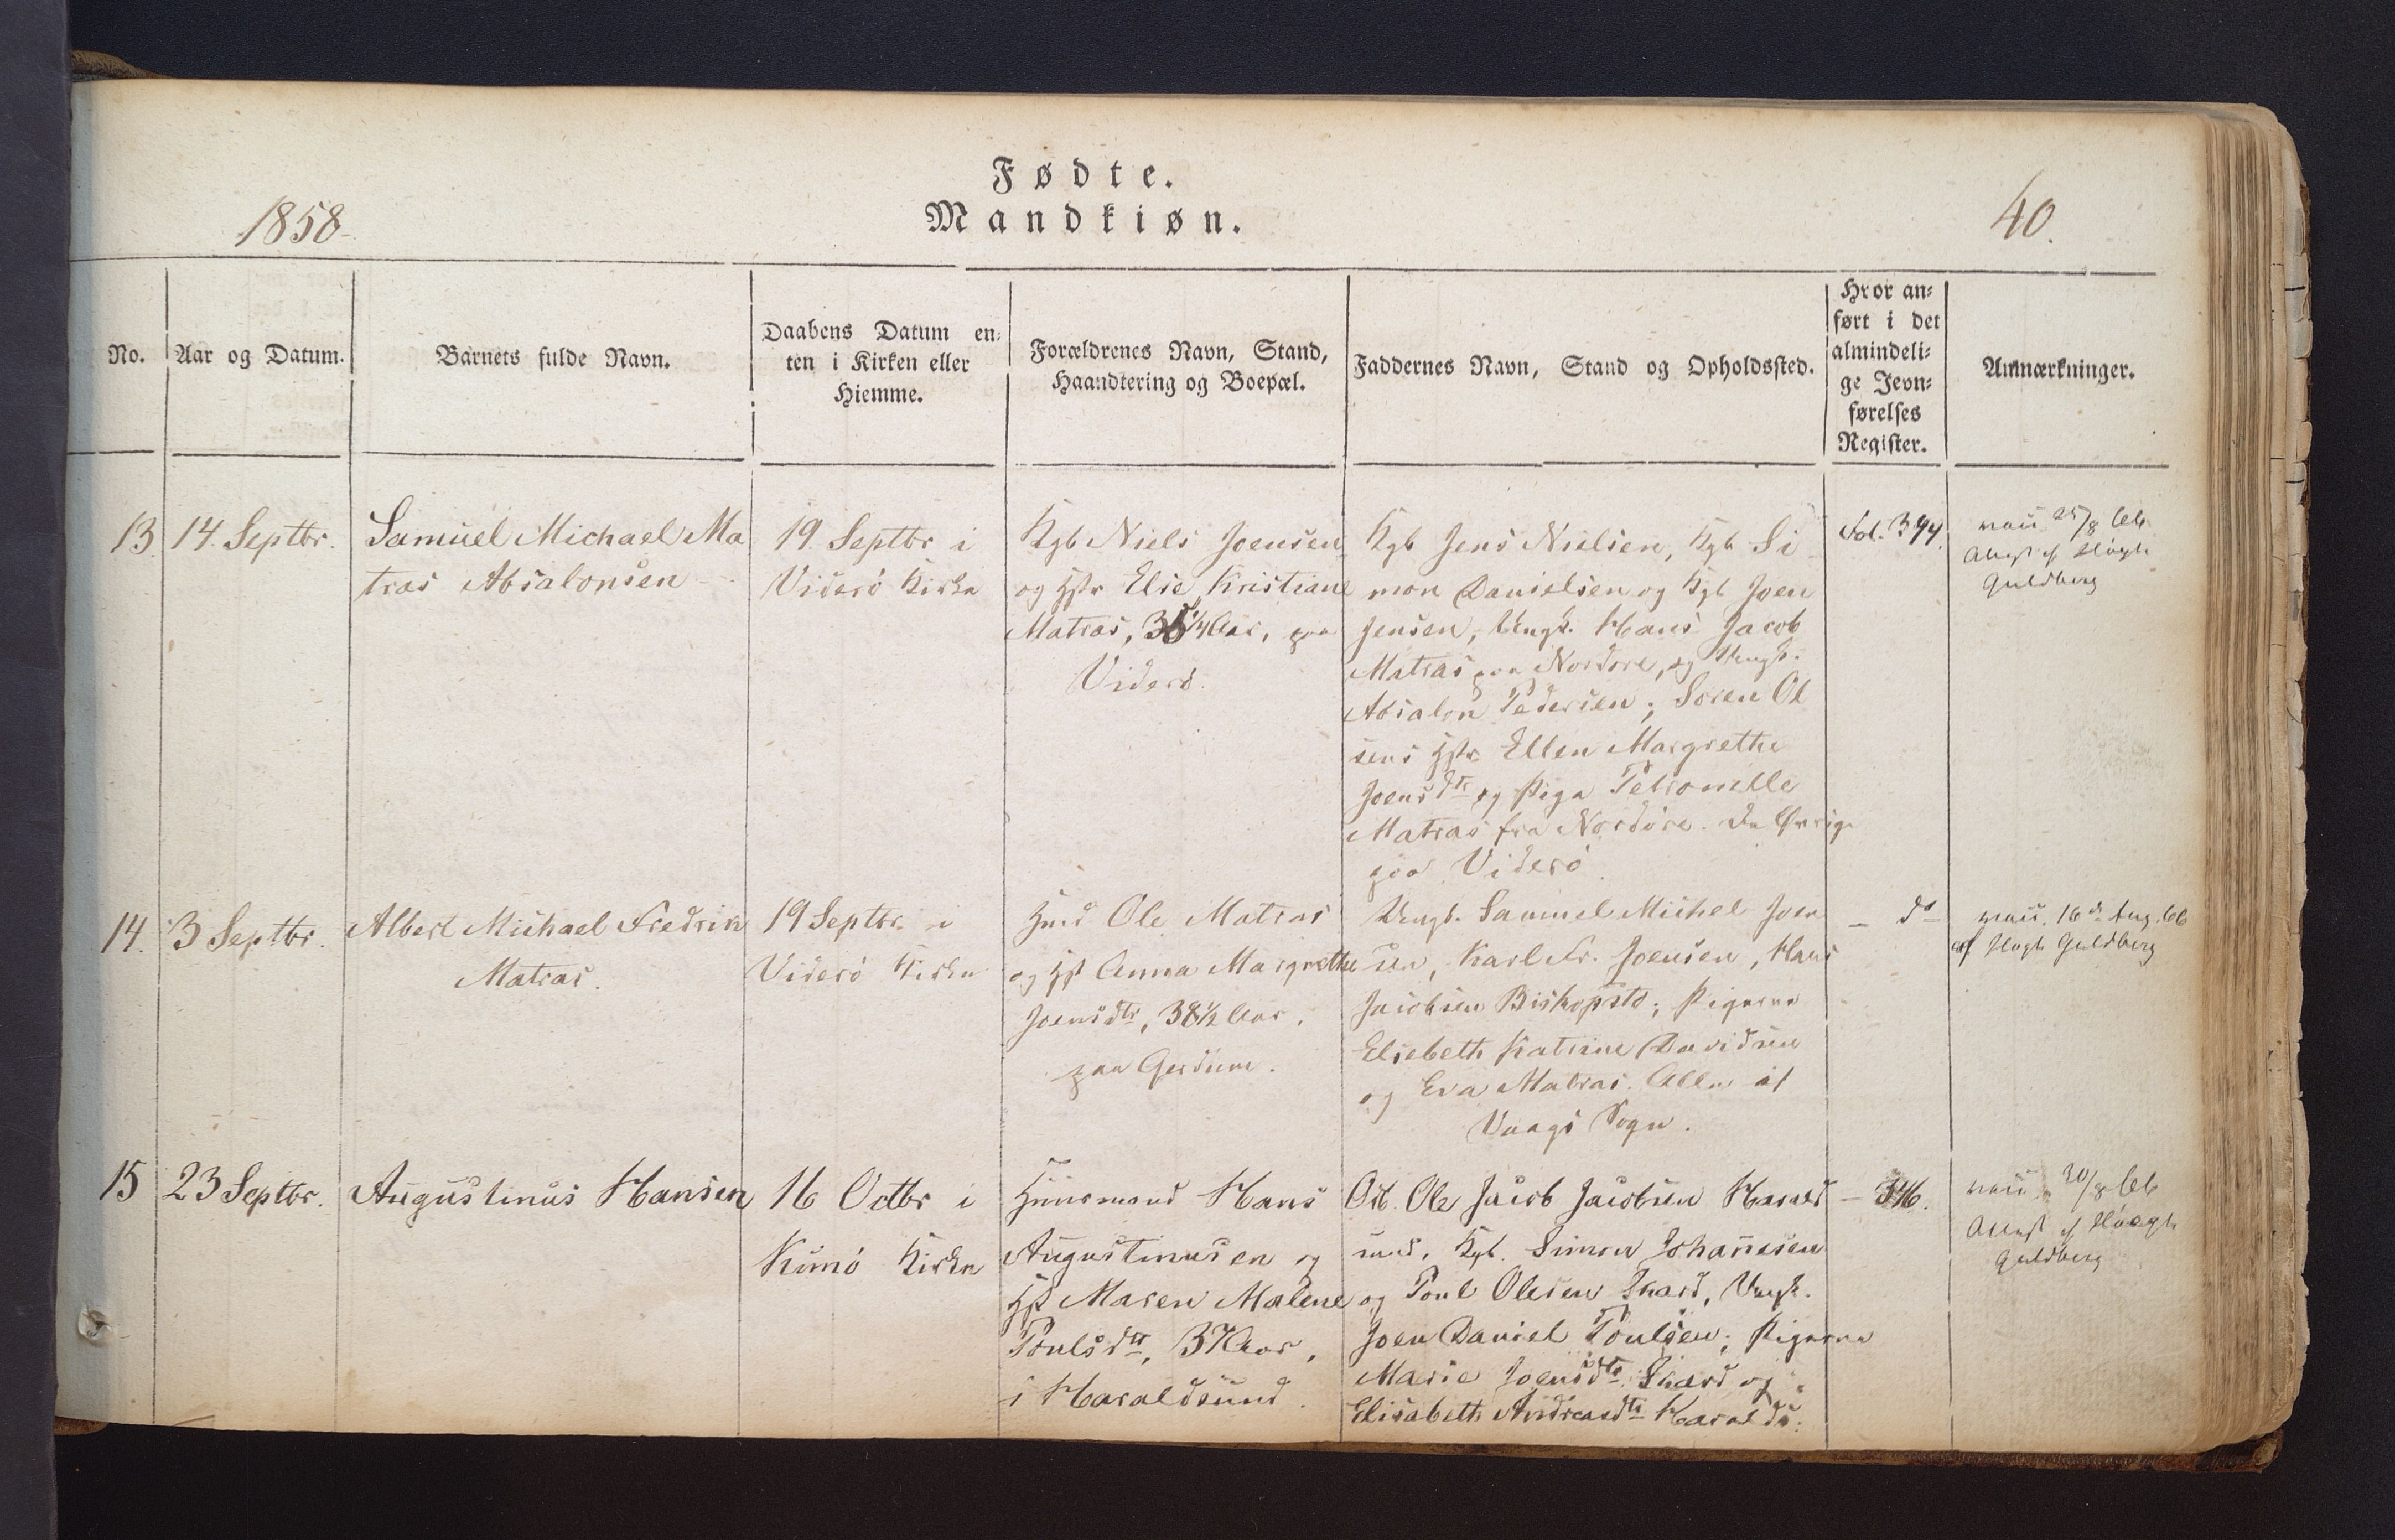 Fødte.
Mandkiøn.
1858
40.
No.
Aar og Datum.
Barnets fulde Navn.
Daabens Datum en-
ten i Kirken eller
Hiemme.
Forældrenes Navn, Stand,
Haandtering og Boepæl.
Faddernes Navn, Stand og Opholdssted.
Hvor an-
ført i det
almindeli-
ge Jevn-
førelses
Register.
Anmærkninger.
13.
14. Septbr.
Samuel Michael Ma
tras Absalonsen
19. Septbr i
Viderö Kirke
Kgb Niels Joensen
og Hstr Elise Kristiane
Matras, 35 1/4 Aar, paa
Viderö.
Kgb Jens Nielsen, Kgb Si-
mon Danielsen og Kgb Joen
Jensen, Ungk. Hans Jacob
Matras paa Nordöre, og Ungk.
Absalon Pedersen; Sören Ol
sens Hstr Ellen Margrethe
Joensdtr og Pige Petronelle
Matras fra Nordöre. De Øvrige
paa Viderö.
Fol. 344.
vacc. 25/8 66
Attest af Höegh
Guldberg
14.
3 Septbr.
Albert Michael Fredrik
Matras.
19 Septbr. i
Viderö Kirke
Hmd Ole Matras
og Hst Anna Margrethe
Joensdtr, 38 1/2 Aar,
paa
Ungk. Samuel Michel Joen
sen, Karl Fr. Joensen, Hans
Jacobsen Biskopstö; Pigerne
Elsebeth Katrine Davidsen
og Eva Matras. Alle af
Vaags Sogn.
— do
vacc. 16de Aug. 66
af Høegh Guldberg
15
23 Septbr.
Augustinus Hansen
16 Octbr i
Kunö Kirke
Huusmand Hans
Augustinusen og
Hst Maren Malene
Poulsdtr, 37 Aar,
i Haraldsund.
Ole Jacob Jacobsen Harald
sund, Kgb. Simon Johannesen
og Poul Olesen Skard, Ungk.
Joen Daniel Poulsen; Pigerne
Marie Joensdtr Skard og
Elisabeth Andreasdtr Haralds.
— 346.
vacc. 30/8 66
Attest af Höegh
Guldberg